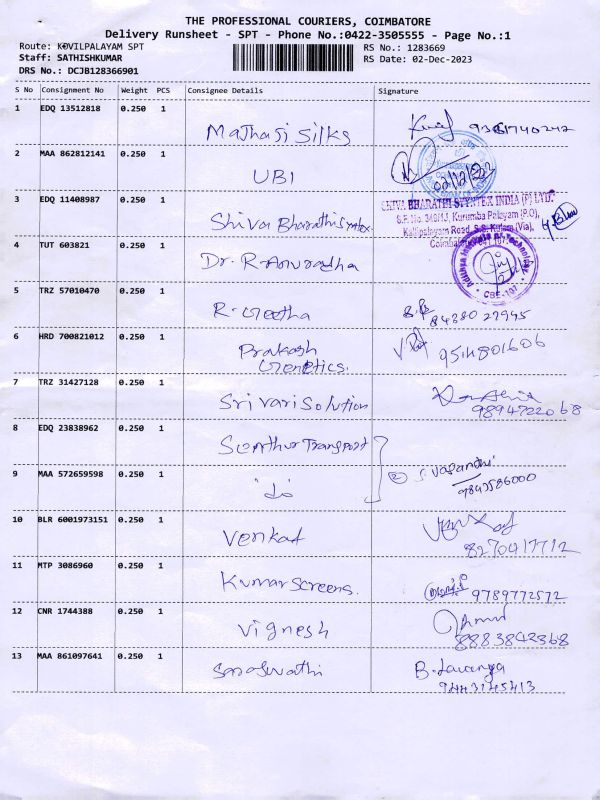 THE PROFESSIONAL COURIERS, COIMBATORE
Delivery Runsheet - SPT - Phone No.:0422-3505555 - Page No.:1
Route: KOVILPALAYAM SPT RS No.: 1283669
Staff: SATHISHKUMAR RS Date: 02-Dec-2023
DRS No.: DCJB128366901
S No Consignment No Weight PCS Consignee Details Signature
1 EDQ 13512818 0.250 1
Mathaji Silks
2 MAA 862812141 0.250 1
UBI 02/12/
3 EDQ 11408987 0.250 1
SHIVA BHARATHI SYNTEX INDIA (P) LTD.
S.F. No. 349/1J, Kurumba Palayam (P.O),
Kallipalayam Road, S.S. Kulam (Via),
Coimbatore - 641 107.
Shiva Bharathi Syntex
4 TUT 603821 0.250 1
Dr. R. Anuradha
Adithya Institute of Technology
CBE-107
5 TRZ 57010470 0.250 1
R. Geetha 84380 27945
6 HRD 700821012 0.250 1
Prakash 9514801606
Genetics.
7 TRZ 31427128 0.250 1
Sri Vari Solution 9894722068
8 EDQ 23838962 0.250 1
Senthur Transport
9 MAA 572659598 0.250 1
② S. Vasanthi
9843586000
10 BLR 6001973151 0.250 1
Venkat 8270417712
11 MTP 3086960 0.250 1
Kumar Screens. 9789772572
12 CNR 1744388 0.250 1
Vignesh 8883842368
13 MAA 861097641 0.250 1
Saraswathi B. Lavanya
9443145413